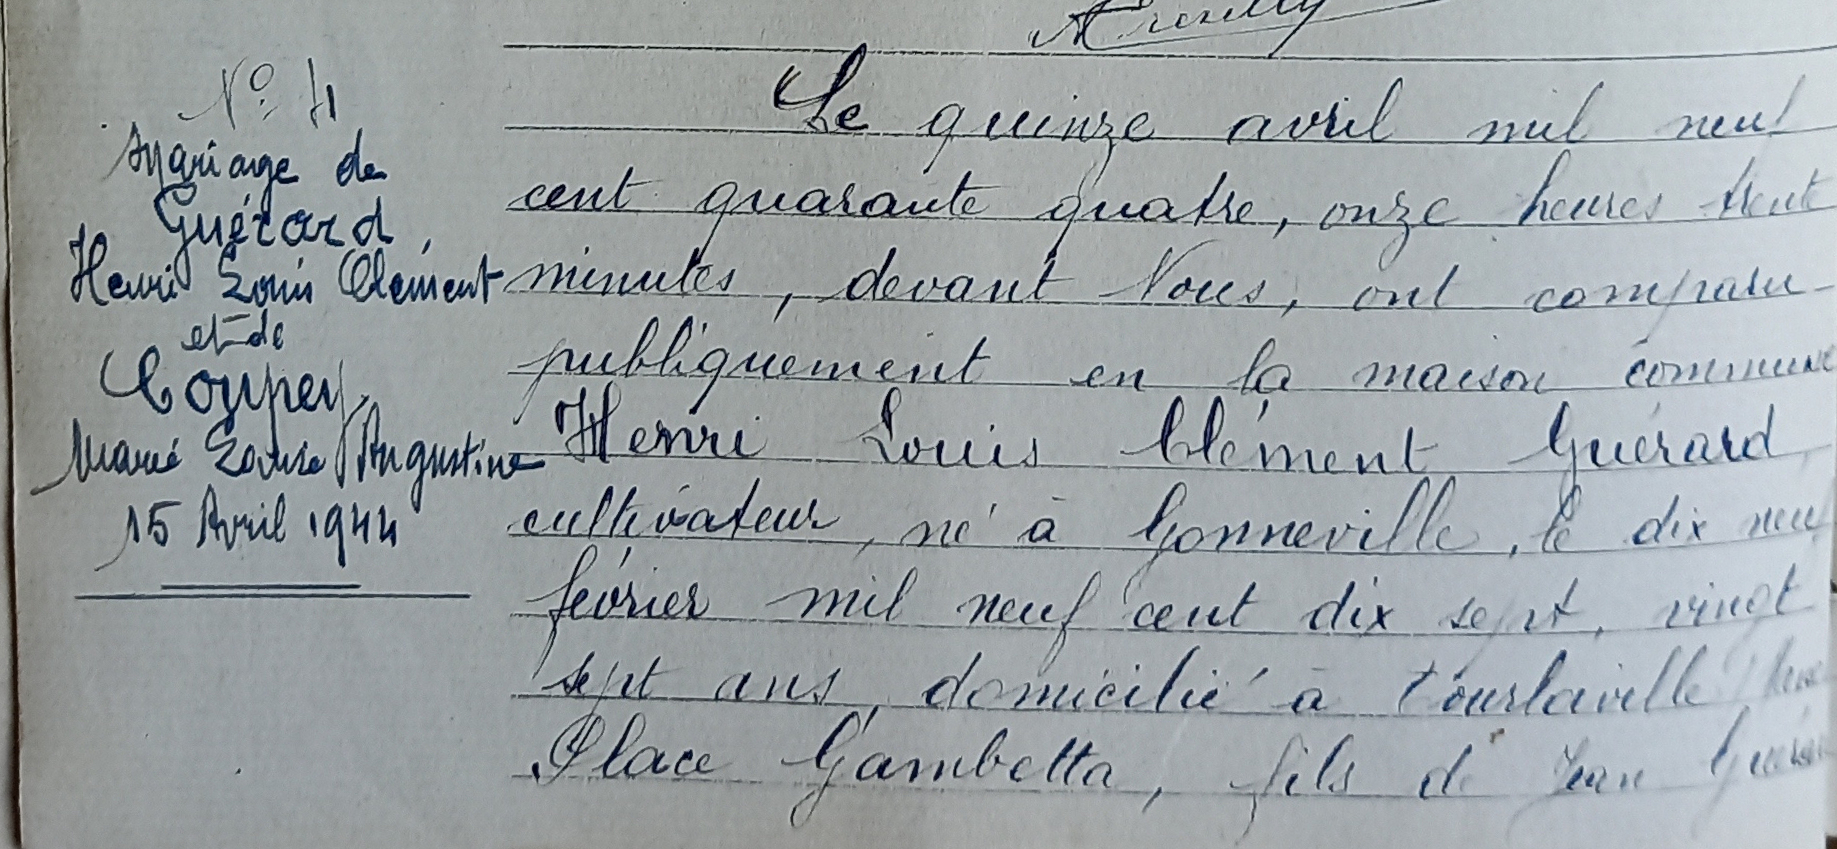 N° 71
Mariage de
Guérard,
Henri Louis Clément
et de
Couppey,
Marie Louise Augustine
15 Avril 1944
Le quinze avril mil neuf
cent quarante quatre, onze heures trente
minutes, devant Nous, ont comparu
publiquement en la maison commune
Henri Louis Clément Guérard,
cultivateur, né à Gonneville, le dix neuf
février mil neuf cent dix sept, vingt
sept ans, domicilié à Tourlaville
Place Gambetta, fils de Jean Guérard